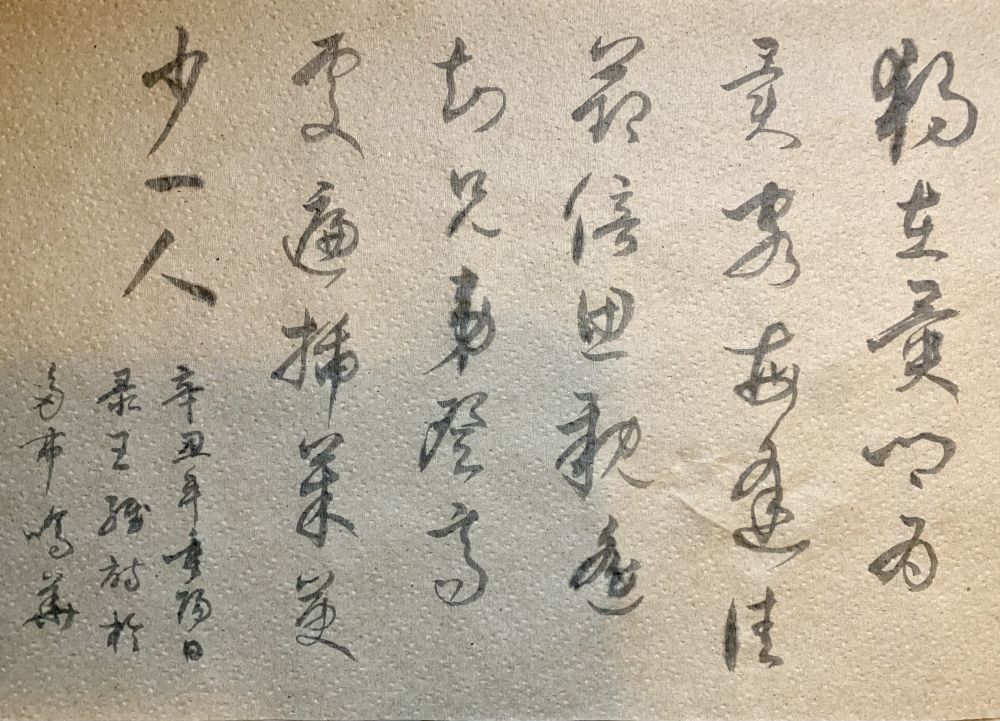 獨在異鄉为
異客每逢佳
節倍思親遙
知兄弟登高
處遍插茱萸
少一人
辛丑年重陽日
录王維詩於
多市鳴華